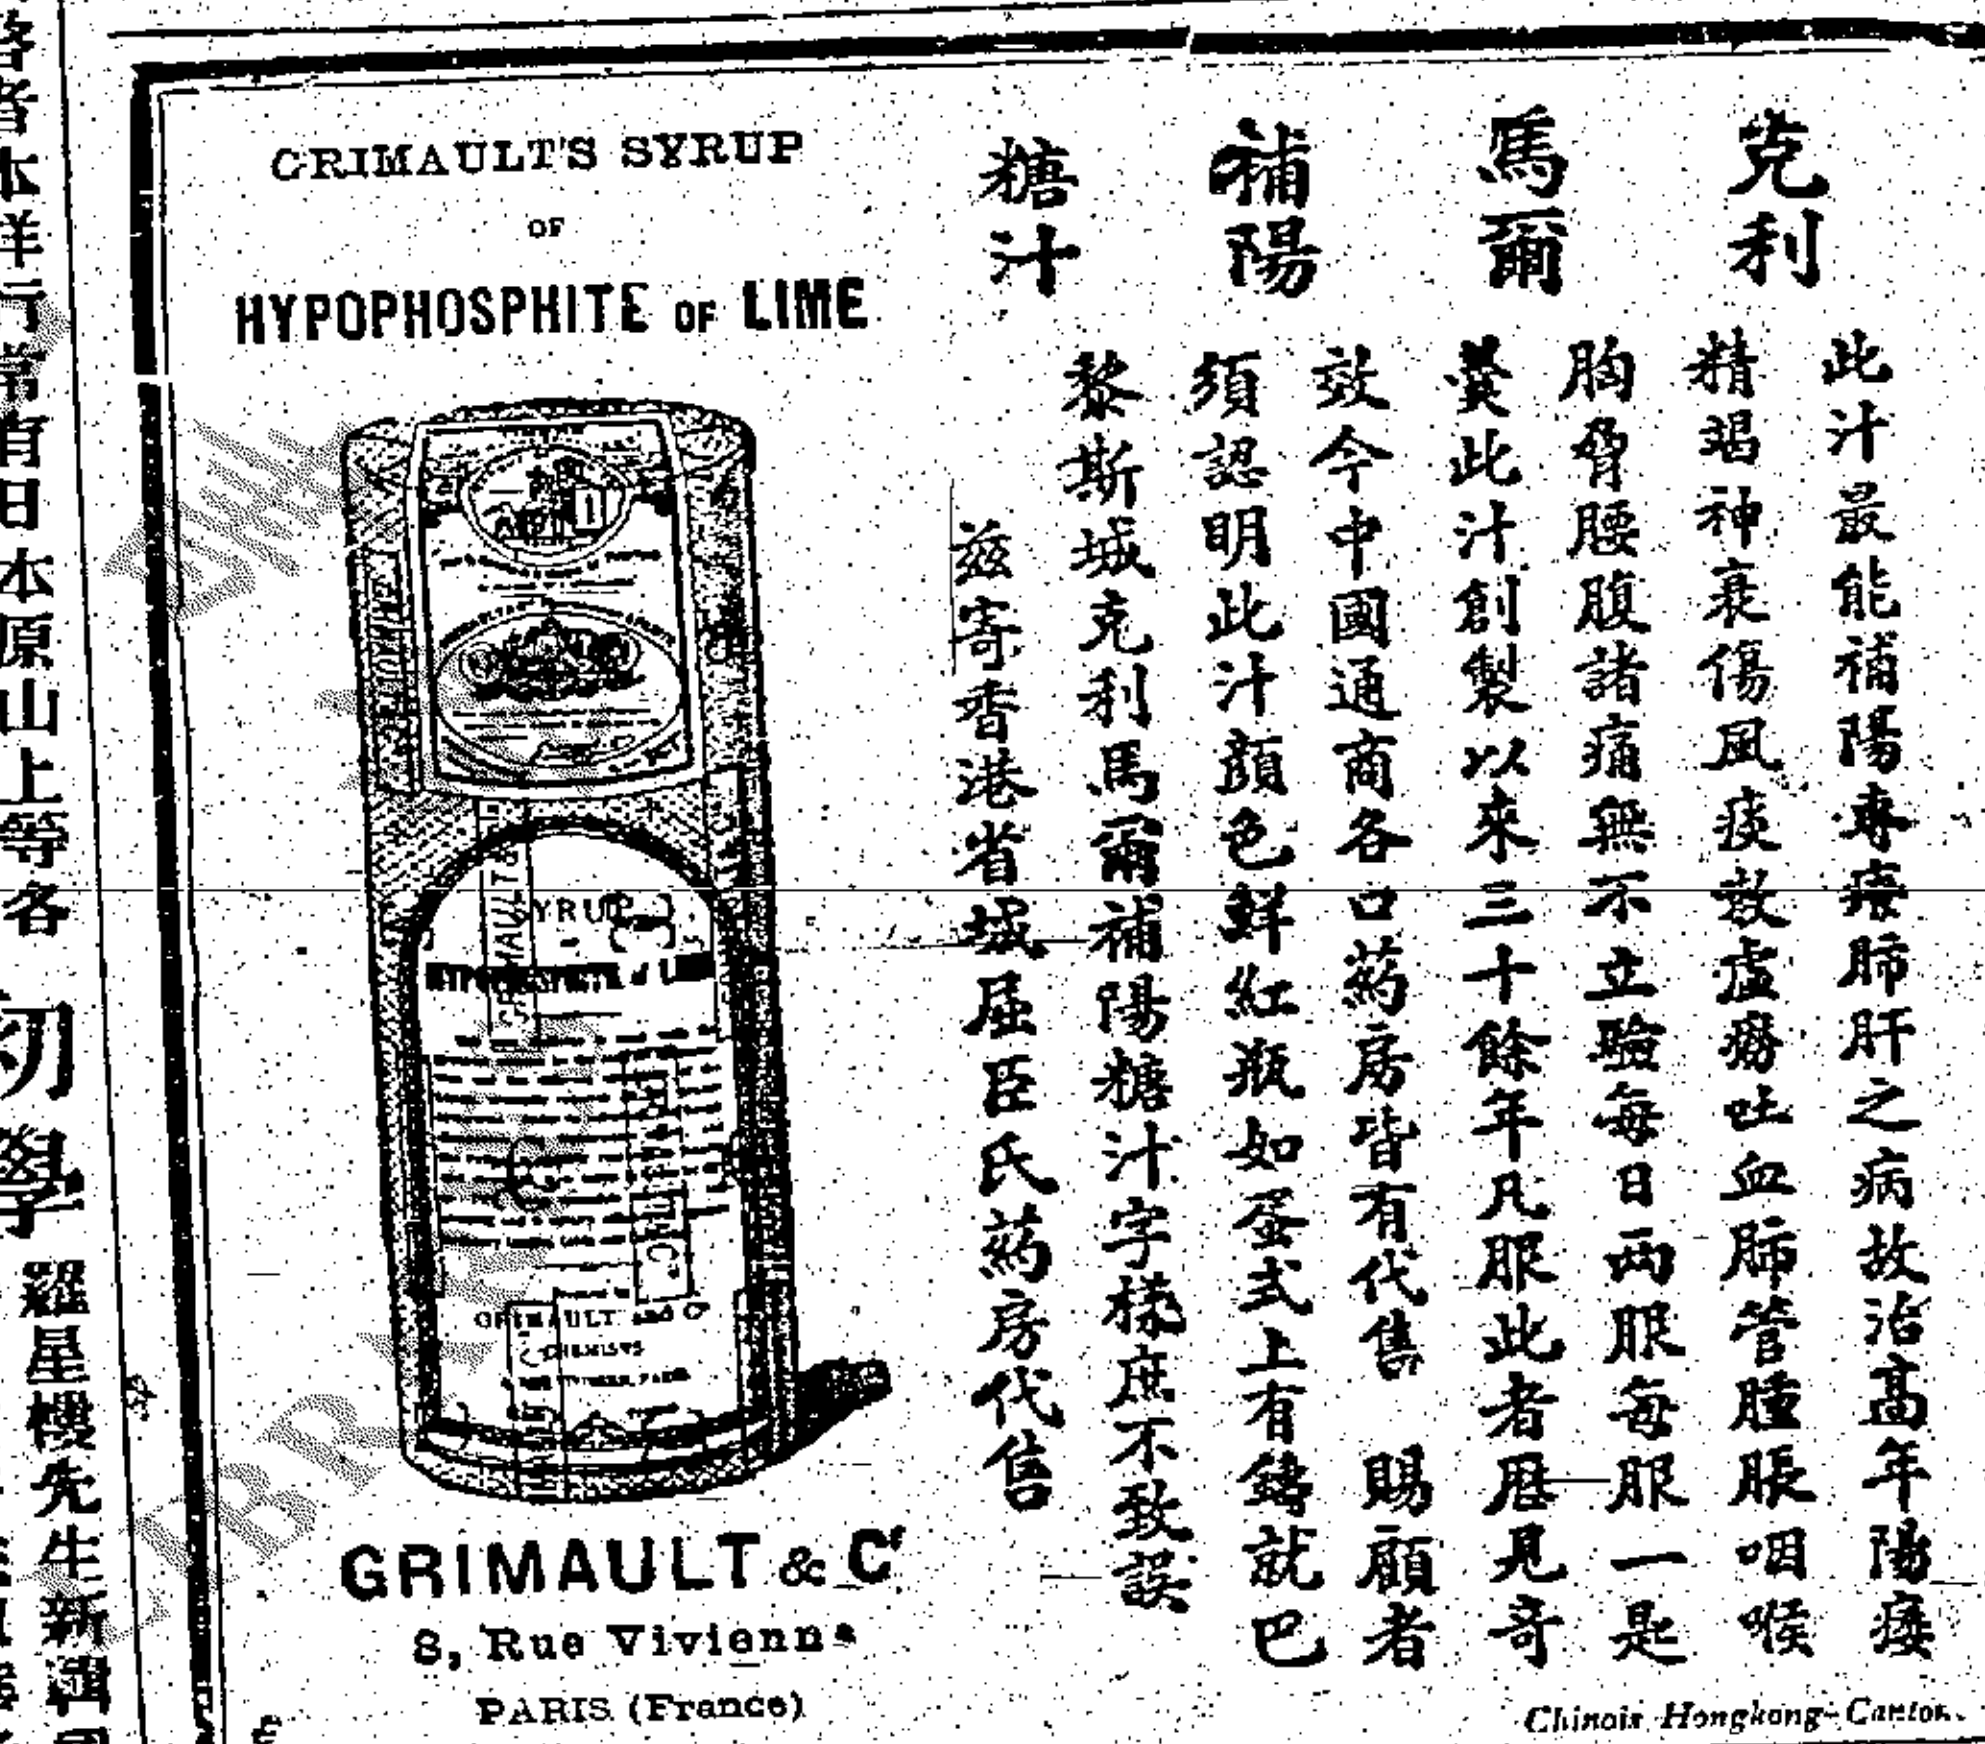 克利
馬爾
補陽
糖汁
此汁最能補陽專療肺肝之病故治高年陽痿
精竭神衰傷風痰欬虛癆吐血肺管腫脹咽喉
胸脅腰腹諸痛無不立驗每日兩服每服一匙
羹此汁創製以來三十餘年凡服此者屢見奇
效今中國通商各口葯房皆有代售 賜顧者
須認明此汁顏色鮮紅瓶如蛋式上有鑄就巴
黎斯城克利馬爾補陽糖汁字樣庶不致誤
茲寄香港省城屈臣氏葯房代售
GRIMAULT'S SYRUP
OF
HYPOPHOSPHITE OF LIME
SYRUP
HYPOPHOSPHITE of LIME
GRIMAULT AND Co
CHEMISTS
GRIMAULT & Co
8, Rue Vivienne
PARIS (France)
Chinois Hongkong-Canton.
洋行常有日本原山上等各
初學
羅星樓先生新輯國